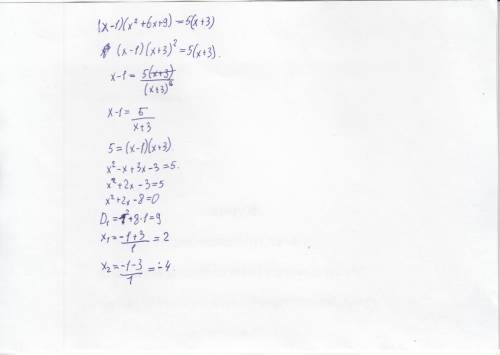 (x-1)(x²+6x+9)=5(x+3)
(x-1)(x+3)²=5(x+3).
x-1=5(x+3)/(x+3)²
x-1=5/(x+3)
5=(x-1)(x+3)
x²-x+3x-3=5.
x²+2x-3=5
x²+2x-8=0
D₁=1²+8·1=9
x₁=(-1+3)/1=2
x₂=(-1-3)/1=-4.